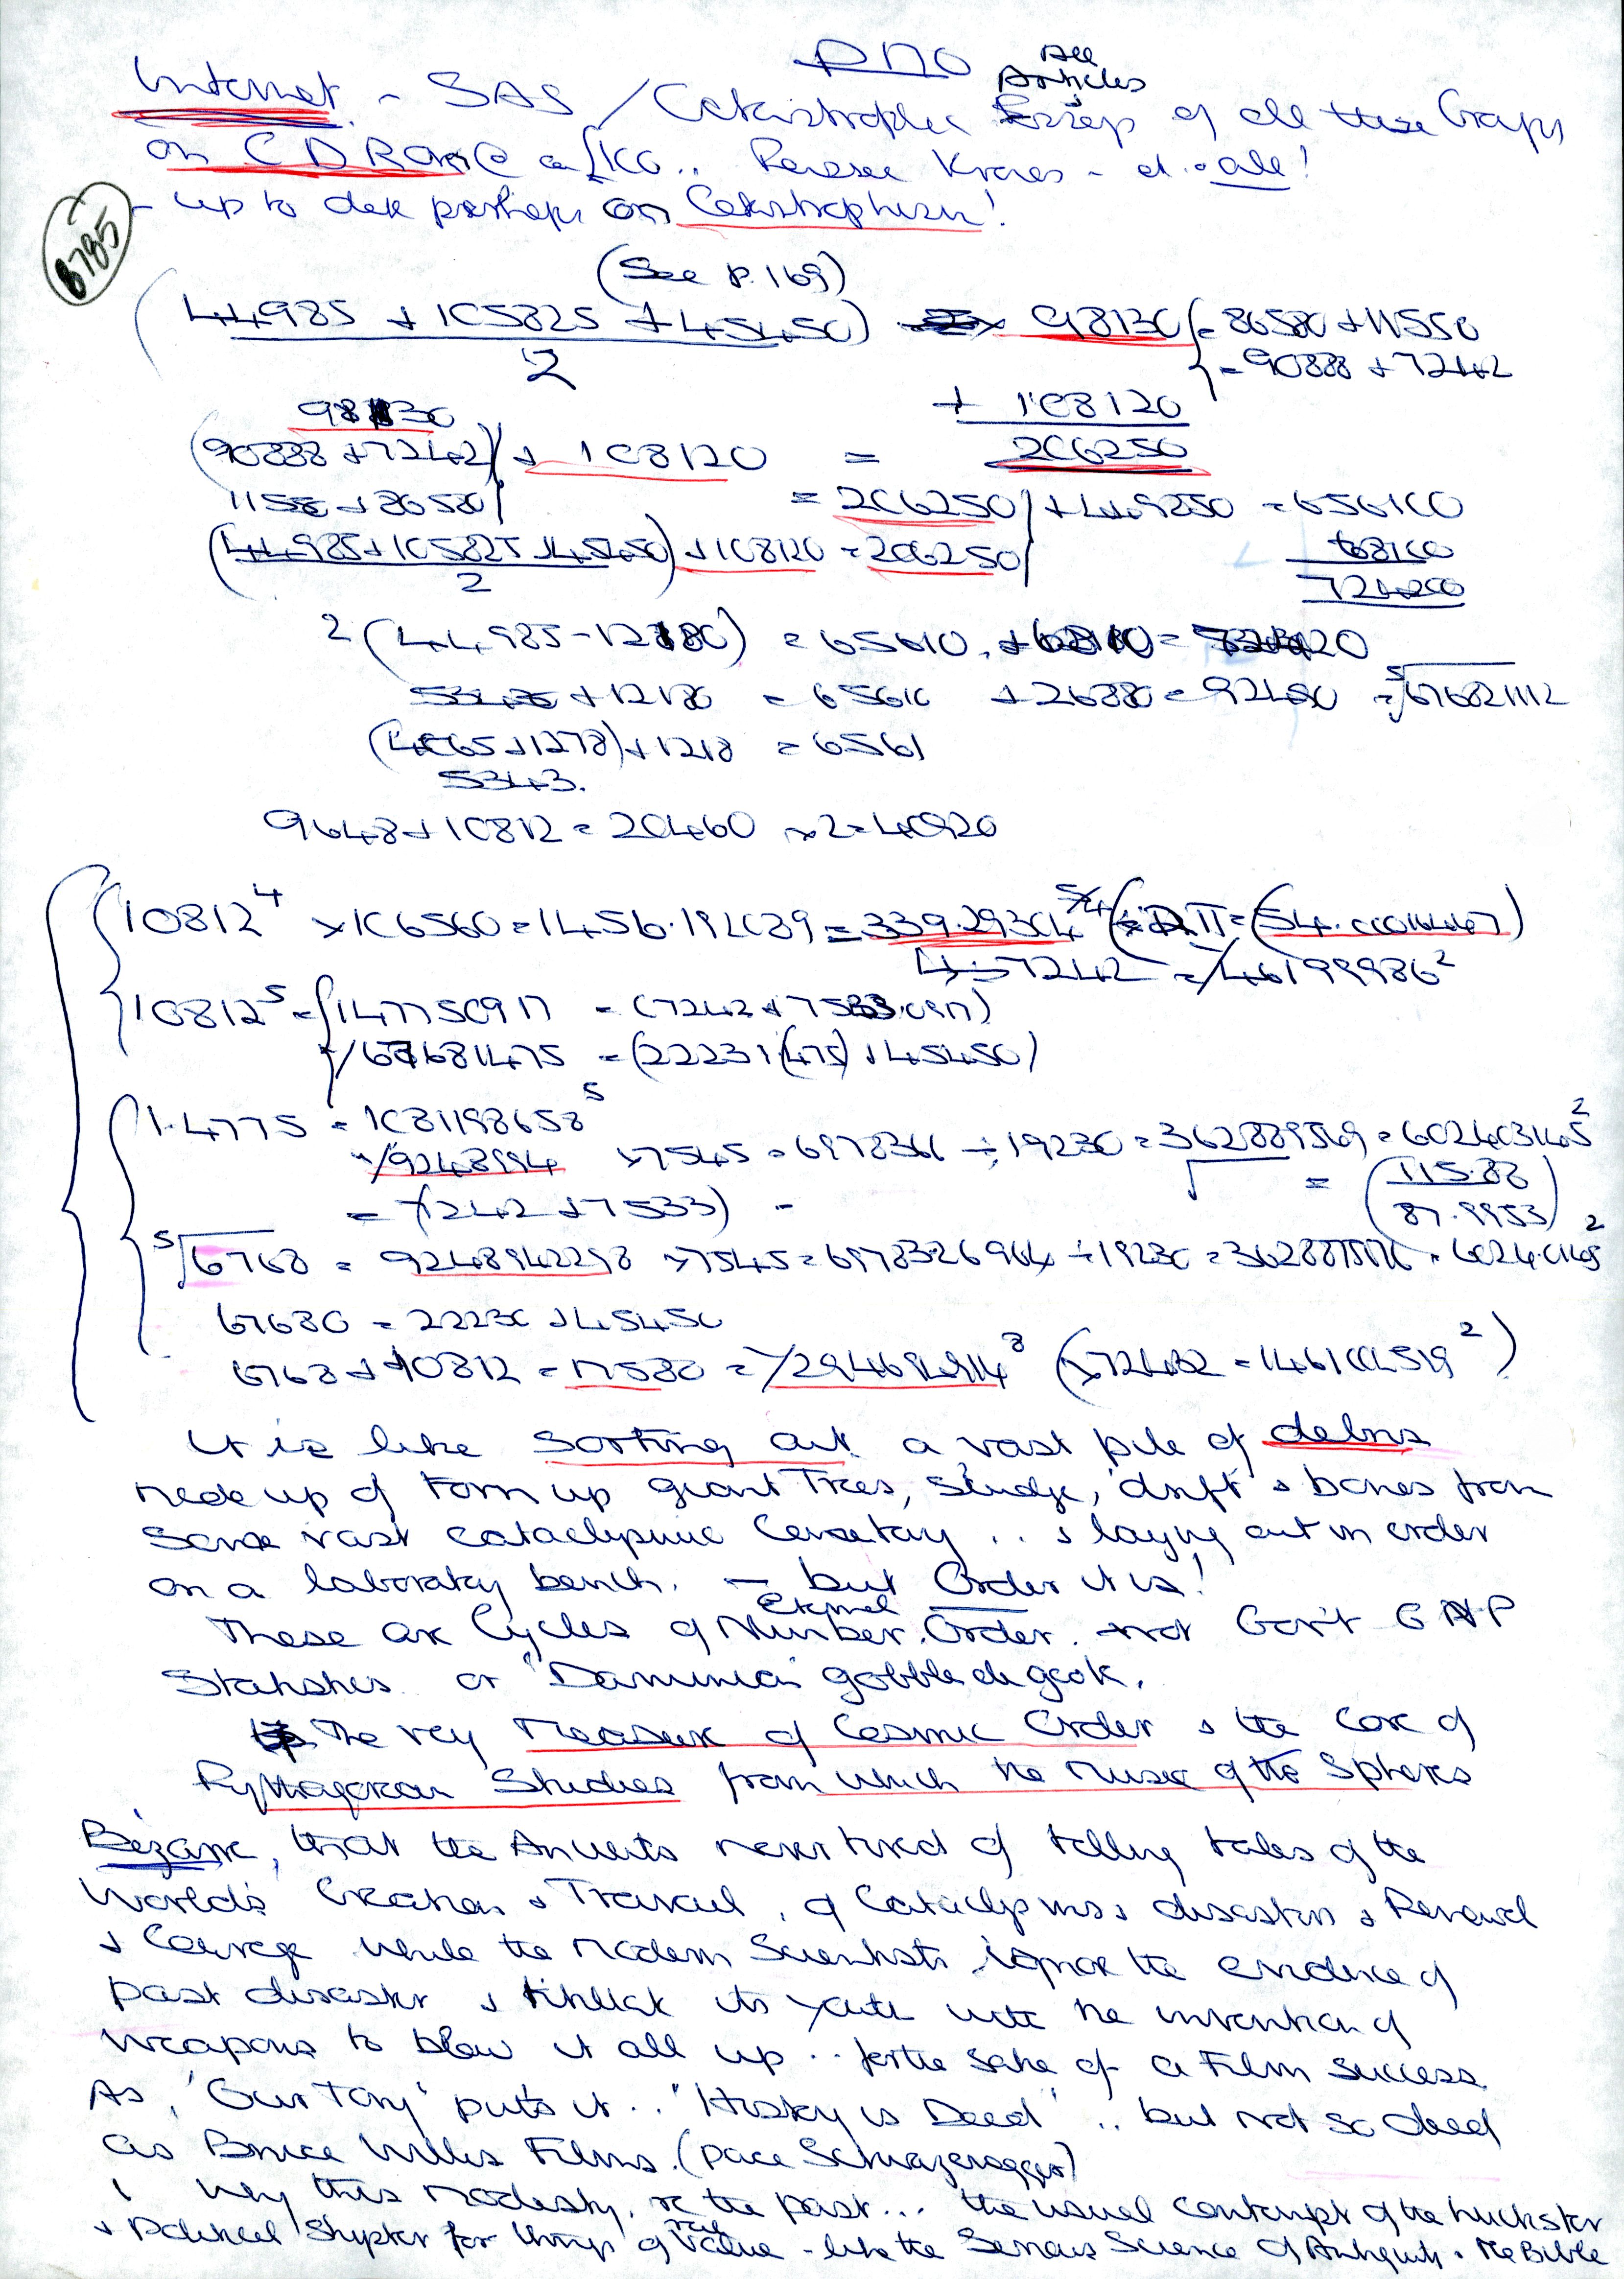 All
Articles
Internet - SAS / Catastrophe of all these Groups
on CD ROM @ a £100..
- up to date perhaps on Catastrophism!
8785
(See p. 169)
(44985 + 105825 + 45450) 98130 { = 86580 + 11550
2 = 90888 + 7242
98130 + 108120
(90888 + 7242) + 108120 = 206250
11550 + 86580 = 206250 + 449850 = 656100
(44985 + 105825 + 45450) + 108120 = 206250 68100
2 724200
2 (44985 - 12180) = 65610
53430 + 12180 = 65610 + 26880 = 92490 = 5√676821112
(4065 + 1278) + 1218 = 6561
5343.
9648 + 10812 = 20460 x 2 = 40920
10812⁴ x 106560 = 1456.192089 = 339.29304 (54.00016467)
7242 = 46199986²
10812⁵ = 147750917 = (7242 + 7533.0917)
67681475 = (22231(475) + 45450)
1.4775 = 1081198658⁵
9248994 x 7545 = 6978366 ÷ 19230 = 362889569 = 602403145²
= (7242 + 7533) - √ = (115.88
87.9953)
5√6768 = 9248942298 x 7545 = 6978326964 ÷ 19230 = 3628875176 = 6024.0145²
67680 = 22230 + 45450
6768 + 10812 = 17580 = 294694914³ (x 72482 = 146104519²)
It is like sorting out a vast pile of debris
made up of torn up giant Trees, sludge, 'drift' & bones from
some vast cataclysmic Cemetary .. & laying out in order
on a laboratory bench. - but Order it is!
Eternal
These are Cycles of Number. Order. not Gov't GNP
Statistics or "Darwinian" gobbledegook.
The very Measure of Cosmic Order & the Core of
Pythagorean Studies from which the Music of the Spheres
Bizarre, that the Ancients never tired of telling tales of the
World's Creation & Travail, of Cataclysms, disasters & Renewal
& Courage while the Modern Scientists ignore the evidence of
past disaster & its youth with the invention of
weapons to blow it all up .. for the sake of a Film success.
As, 'Our Tony' puts it .. "History is Dead" .. but not so dead
as Bruce Willis Films. (pace Schwazenagger)
Why this modesty, re the past... the usual contempt of the huckster
true
& Political Shyster for things of value - like the Serious Science of Antiquity & the Bible